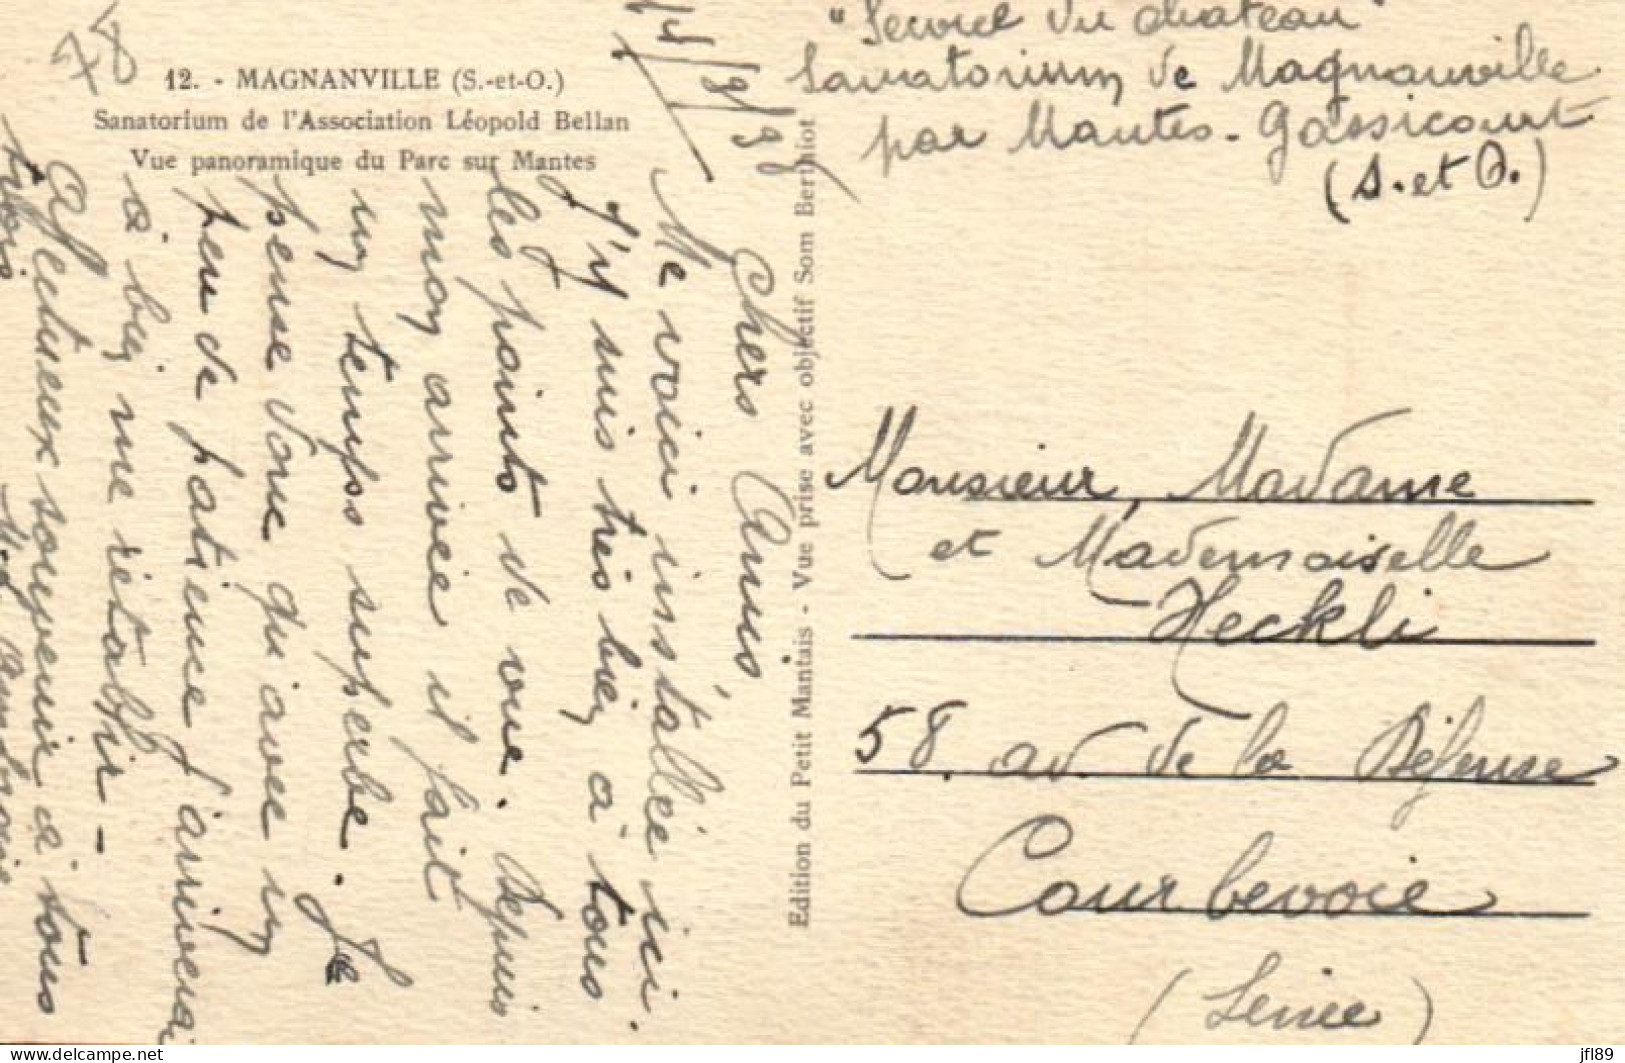 78
12. - MAGNANVILLE (S.-et-O.)
Sanatorium de l'Association Léopold Bellan
Vue panoramique du Parc sur Mantes
Chers Amis,
Me voici installée ici.
J'y suis très bien à tous
les points de vue. Depuis
mon arrivée il fait
un temps superbe. Je
pense donc qu'avec un
peu de patience j'arriverai
à bien me rétablir -
Affectueux souvenir à tous
trois
Edition du Petit Mantais - Vue prise avec objectif Som Berthiot
du chateau"
Sanatorium de Magnanville
par Mantes-Gassicourt
(S. et O.)
Monsieur, Madame
et Mademoiselle
Heckli
58. av. de la Défense
Courbevoie
(Seine)
delcampe.net
jfl89